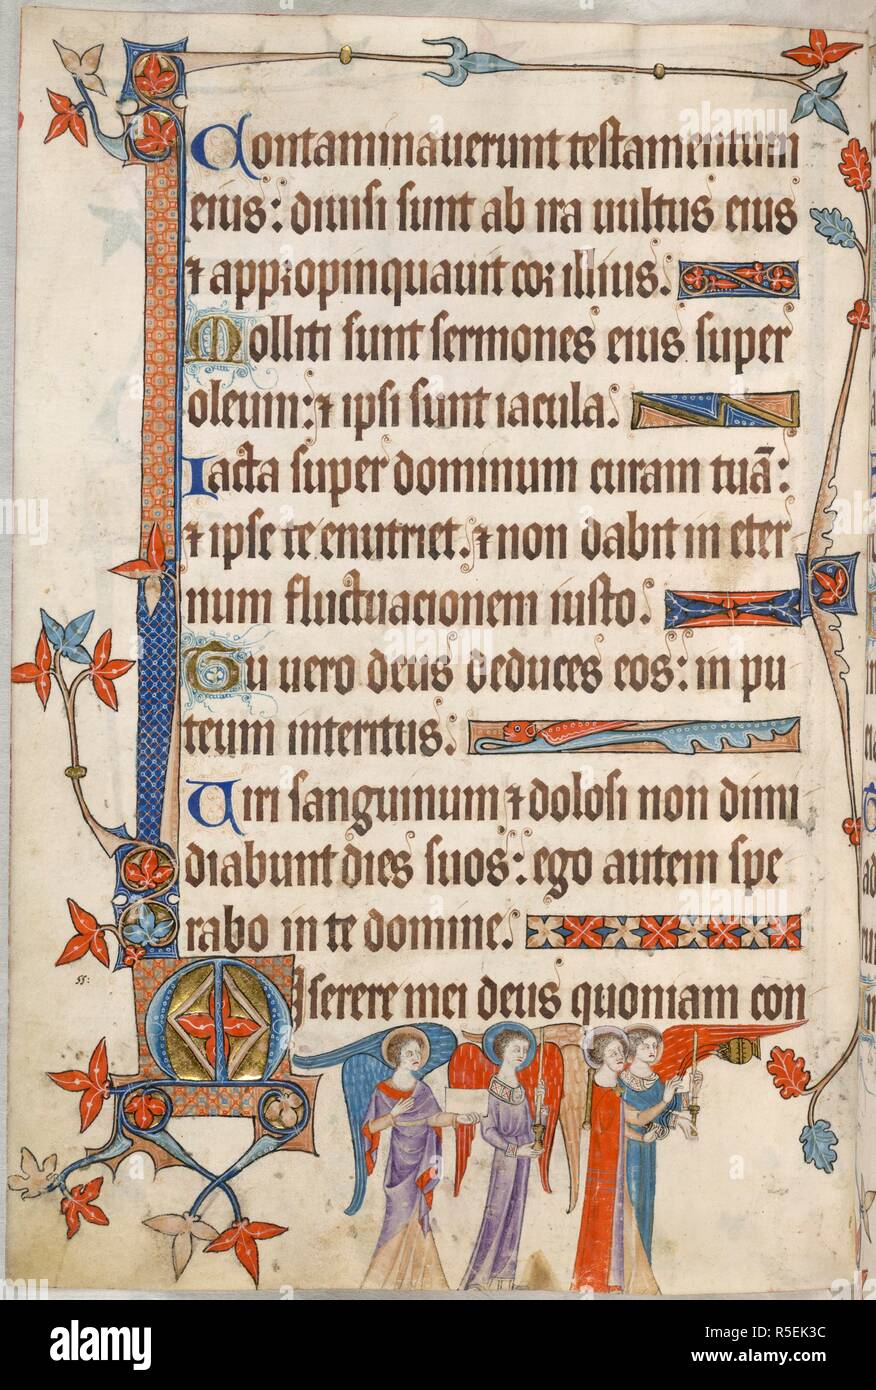 Contaminauerunt testamentum
eius: diuisi sunt ab ira uultus eius
⁊ appropinquauit cor illius.
Molliti sunt sermones eius super
oleum: ⁊ ipsi sunt iacula.
Iacta super dominum curam tuā:
⁊ ipse te enutriet. ⁊ non dabit in eter
num fluctuacionem iusto.
Tu uero deus deduces eos: in pu
teum interitus.
Uiri sanguinum ⁊ dolosi non dimi
diabunt dies suos: ego autem spe
rabo in te domine.
Miserere mei deus quoniam con
alamy
Image ID: R5EK3C
www.alamy.com